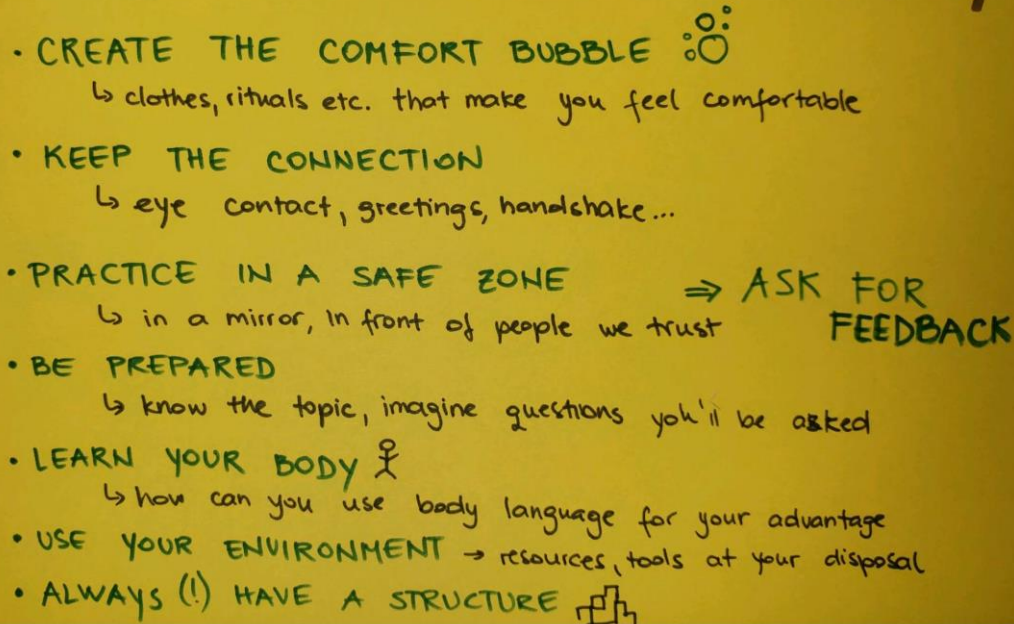 · CREATE THE COMFORT BUBBLE
↳ clothes, rituals etc. that make you feel comfortable
· KEEP THE CONNECTION
↳ eye contact, greetings, handshake...
· PRACTICE IN A SAFE ZONE ⇒ ASK FOR
↳ in a mirror, in front of people we trust FEEDBACK
· BE PREPARED
↳ know the topic, imagine questions yoh'll be asked
· LEARN YOUR BODY
↳ how can you use body language for your advantage
· USE YOUR ENVIRONMENT → resources, tools at your disposal
· ALWAYS (!) HAVE A STRUCTURE